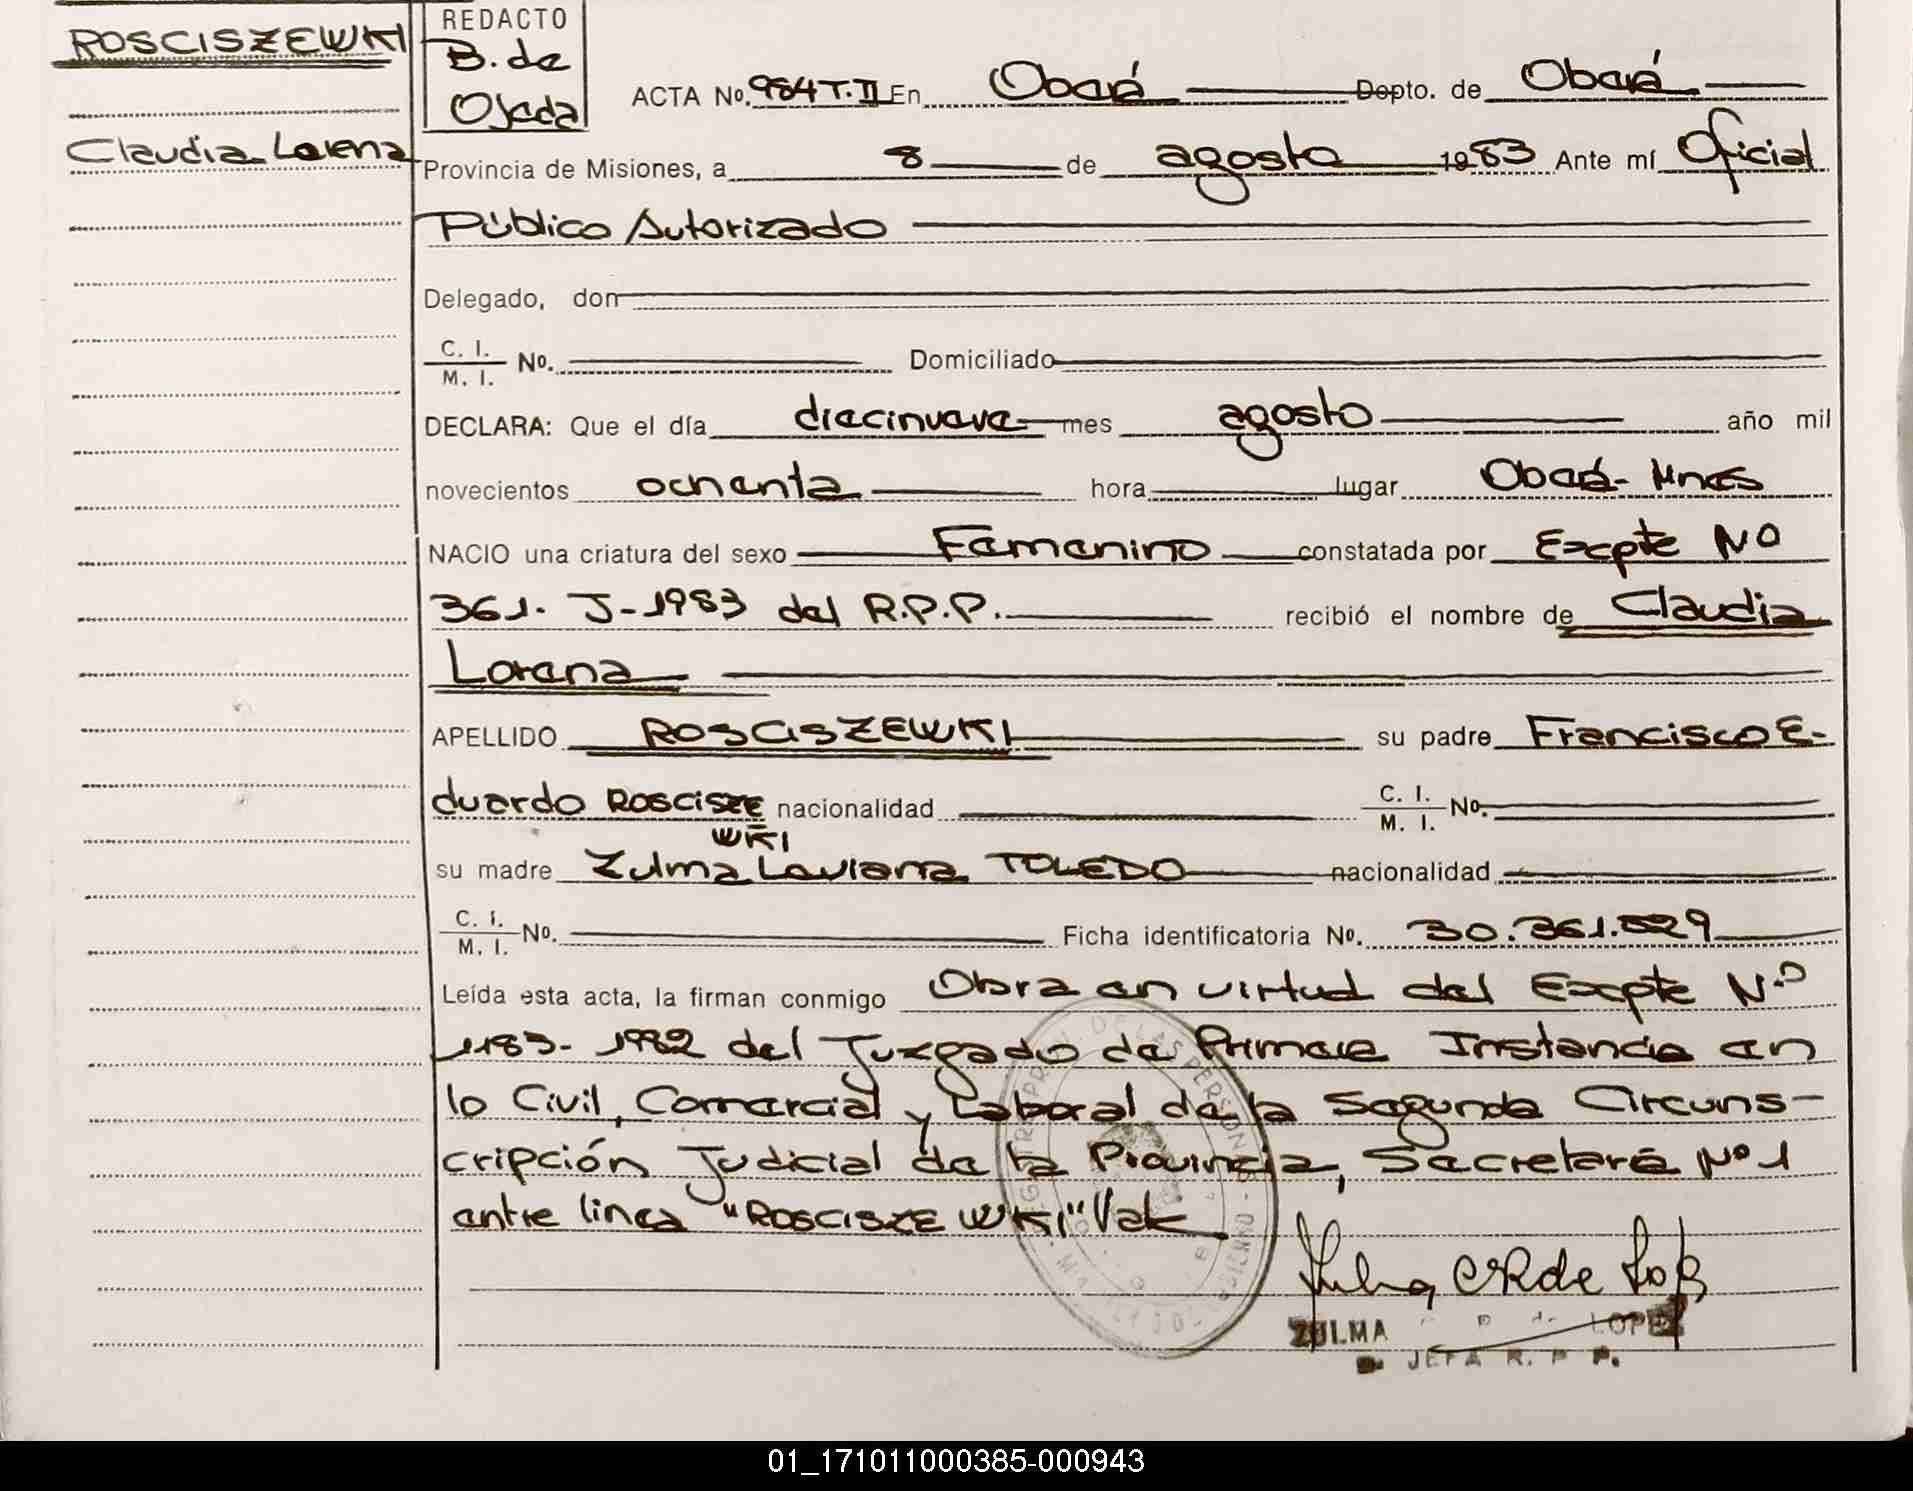 ROSCISZEWKI
Claudia Lorena
REDACTO
B. de
Ojeda
ACTA No. 984 T. II En Oberá Depto. de Oberá
Provincia de Misiones, a 8 de agosto 1983 Ante mí Oficial
Público Autorizado
Delegado, don
C. I.
M. I. No. Domiciliado
DECLARA: Que el día diecinueve mes agosto año mil
novecientos ochenta hora lugar Oberá- Mnes
NACIO una criatura del sexo Femenino constatada por Expte No
361. J-1983 del R.P.P. recibió el nombre de Claudia
Lorena
APELLIDO ROSCISZEWKI su padre Francisco E-
duardo ROSCISZE nacionalidad C. I.
M. I. No.
WKI
su madre Zulma TOLEDO nacionalidad
C. I.
M. I. No. Ficha identificatoria No. 30.361.
Leída esta acta, la firman conmigo Obra en virtud del Expte N.o
1982 del Juzgado de Primera Instancia en
lo Civil, Comercial y Laboral de la Segunda Circuns-
cripción Judicial de la Provincia, Secretaría No 1
entre línea "ROSCISZEWKI" Vale
ZULMA de LOPEZ
JEFA R. P. P.
01_171011000385-000943